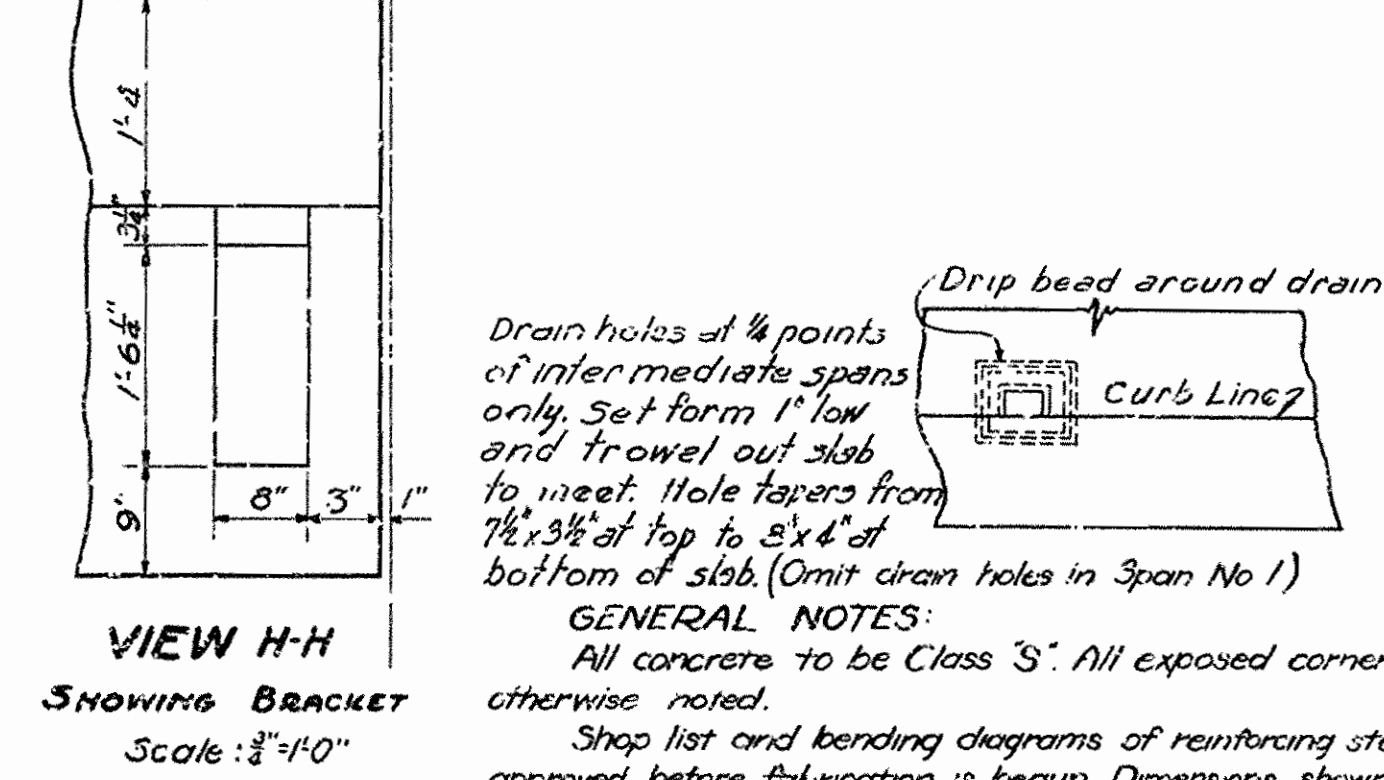 1'-4
3 1/4"
1'-6 1/4"
9"
8" 3" 1"
VIEW H-H
SHOWING BRACKET
Scale: 3/4"=1'-0"
Drip bead around drain
Curb Line
Drain holes at 1/4 points
of intermediate spans
only. Set form 1" low
and trowel out slab
to meet. Hole tapers from
7 1/2" x 3 1/2" at top to 8" x 4" at
bottom of slab. (Omit drain holes in Span No 1)
GENERAL NOTES:
All concrete to be Class "S". All exposed corner
otherwise noted.
Shop list and bending diagrams of reinforcing ste
approved before fabrication is begun. Dimensions show